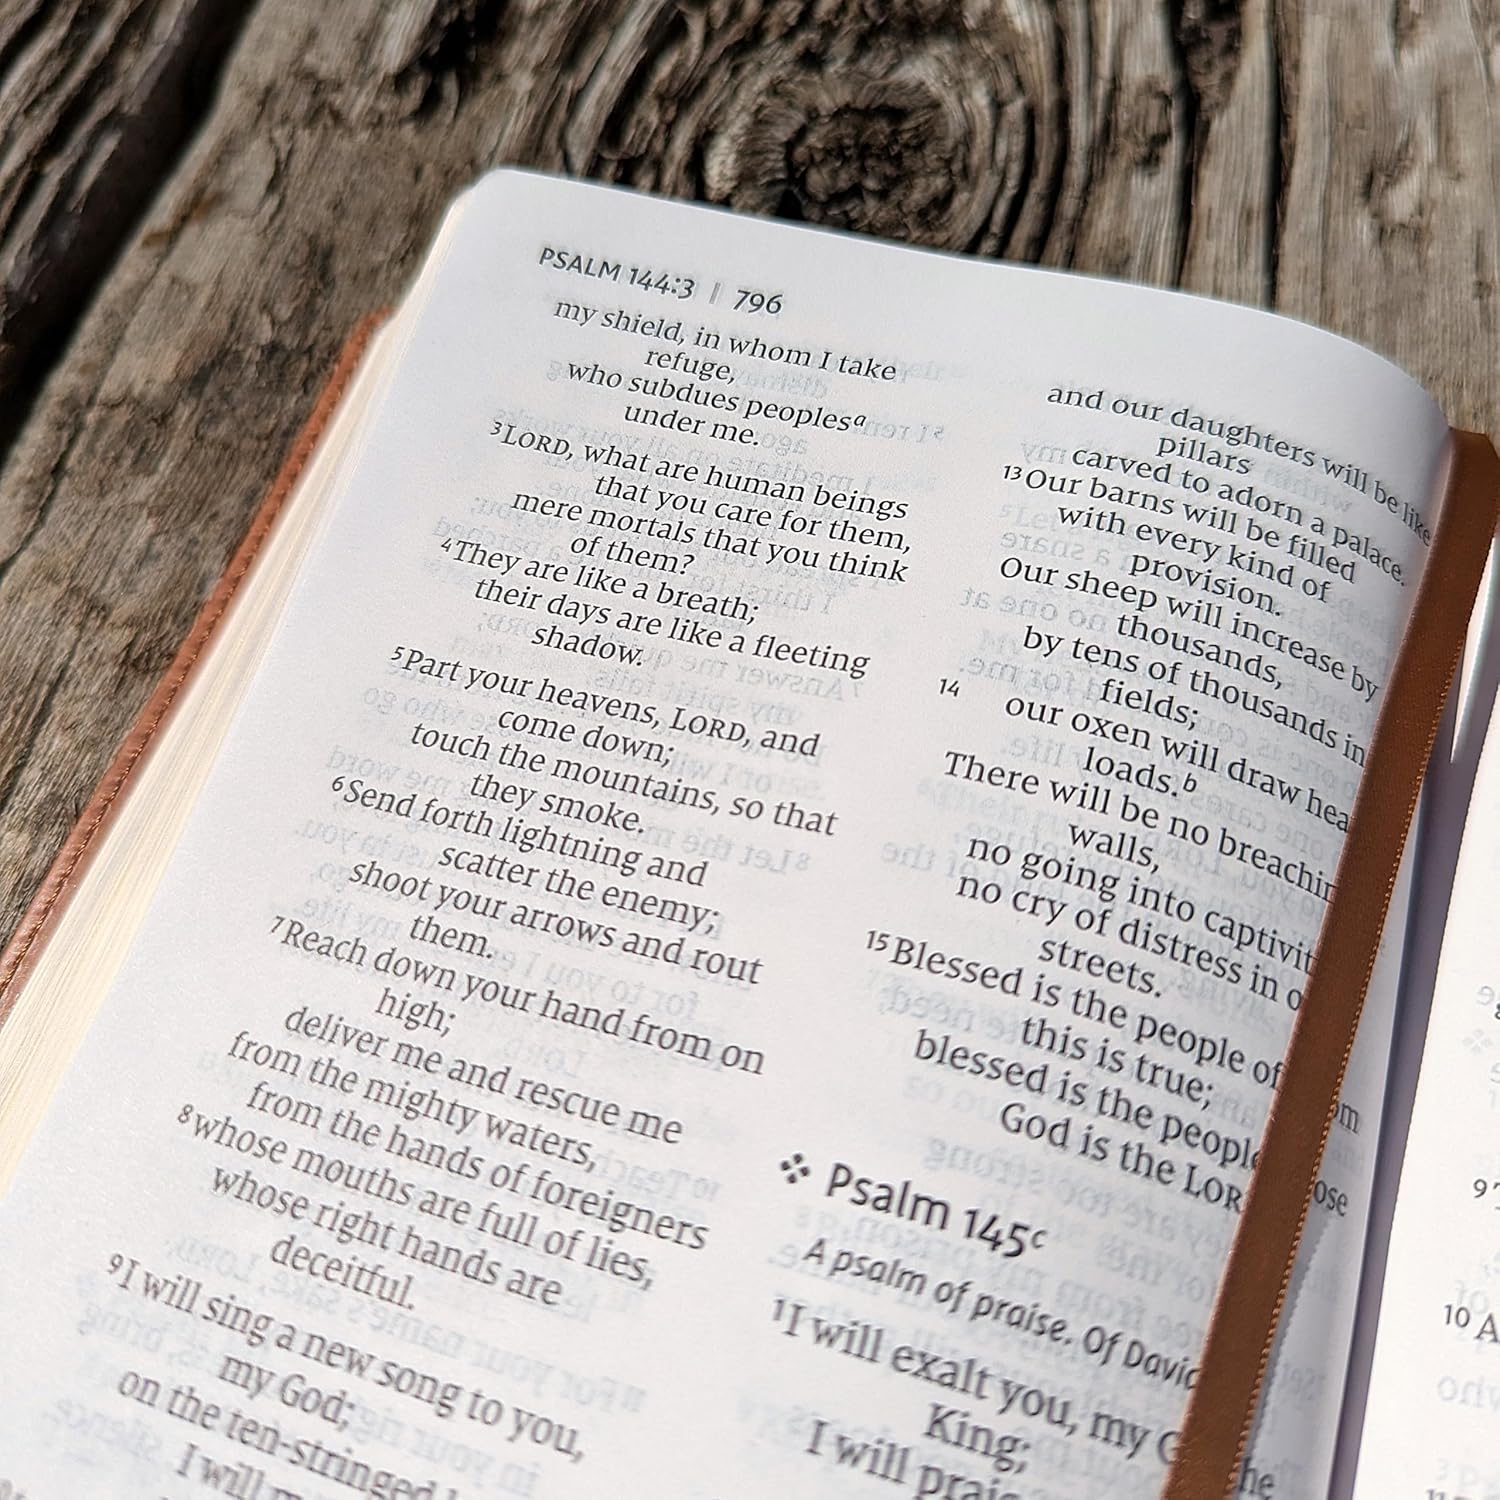 PSALM 144:3 | 796
my shield, in whom I take
refuge,
who subdues peoplesᵃ
under me.
3 LORD, what are human beings
that you care for them,
mere mortals that you think
of them?
4 They are like a breath;
their days are like a fleeting
shadow.
5 Part your heavens, LORD, and
come down;
touch the mountains, so that
they smoke.
6 Send forth lightning and
scatter the enemy;
shoot your arrows and rout
them.
7 Reach down your hand from on
high;
deliver me and rescue me
from the mighty waters,
from the hands of foreigners
8 whose mouths are full of lies,
whose right hands are
deceitful.
9 I will sing a new song to you,
my God;
on the ten-stringed
I will
and our daughters will be like
pillars
carved to adorn a palace.
13 Our barns will be filled
with every kind of
provision.
Our sheep will increase by
thousands,
by tens of thousands in
fields;
14 our oxen will draw hea
loads.ᵇ
There will be no breachin
walls,
no going into captivit
no cry of distress in o
streets.
15 Blessed is the people of
om
this is true;
blessed is the people
ose
God is the LOR
❖ Psalm 145ᶜ
A psalm of praise. Of David
1 I will exalt you, my G
he
King;
I will prais
9
10 A